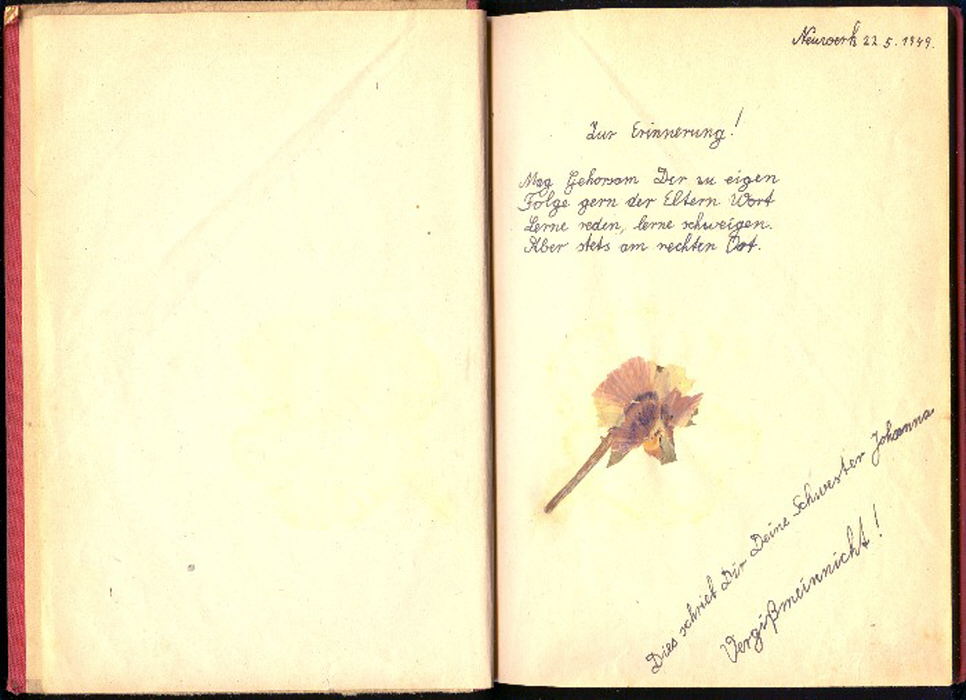 Neuwerk 22.5.1949.
Zur Erinnerung!
Mag Gehorsam Dir zu eigen
Folge gern der Eltern Wort
Lerne reden, lerne schweigen.
Aber stets am rechten Ort.
Dies schrieb Dir Deine Schwester Johanna
Vergißmeinnicht!